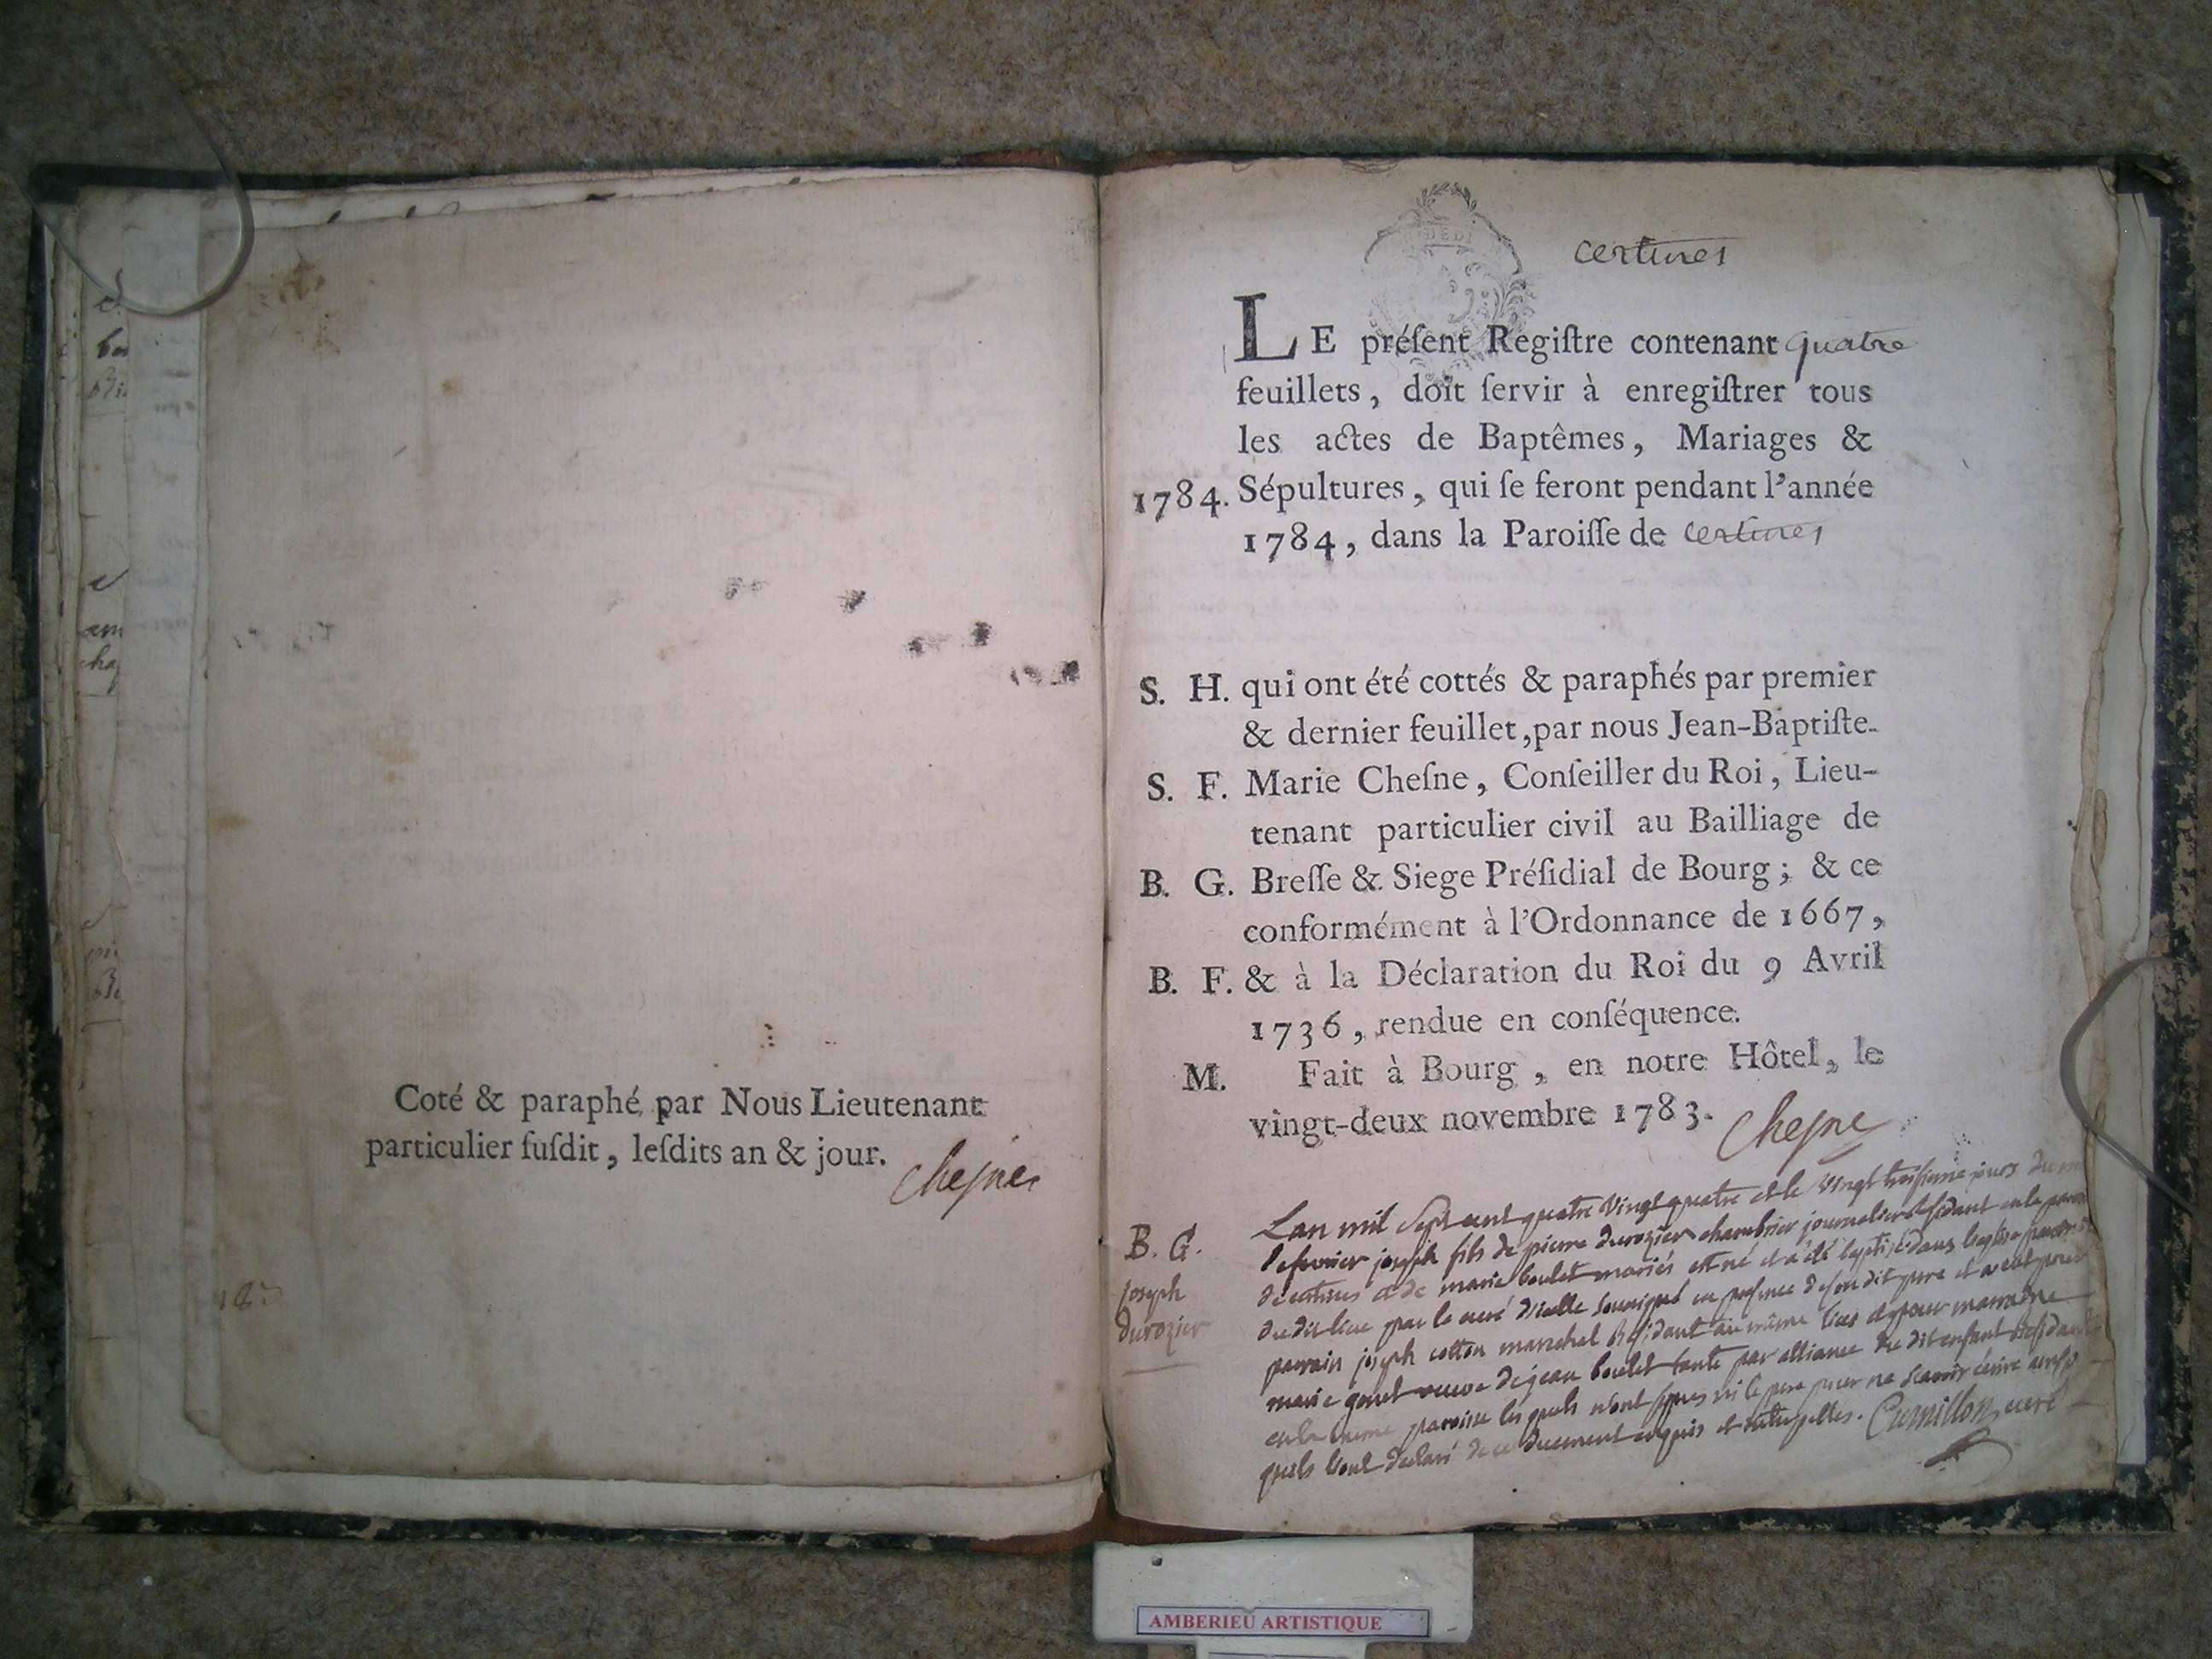 Coté & paraphé par Nous Lieutenant
particulier ſuſdit, leſdits an & jour.
Cheſne
certines
LE préſent Regiſtre contenant quatre
feuillets, doit ſervir à enregiſtrer tous
les actes de Baptêmes, Mariages &
1784. Sépultures, qui ſe feront pendant l'année
1784, dans la Paroiſſe de certines
S. H. qui ont été cottés & paraphés par premier
& dernier feuillet, par nous Jean-Baptiſte-
S. F. Marie Cheſne, Conſeiller du Roi, Lieu-
tenant particulier civil au Bailliage de
B. G. Breſſe & Siege Préſidial de Bourg; & ce
conformément à l'Ordonnance de 1667,
B. F. & à la Déclaration du Roi du 9 Avril
1736, rendue en conſéquence.
M. Fait à Bourg, en notre Hôtel, le
vingt-deux novembre 1783. Cheſne
B. G.
joseph
durozier
Lan mil Sept cent quatre Vingt quatre et le vingt troisieme jours du
de fevrier joseph fils de pierre durozier chambrier journalier Residant en la
de certines et de marie boulet mariés est né et a été baptisé dans leglise
du dit lieu par le curé d'icelle soussigné en presence de son dit pere et a eut pour
parrain joseph cotton marechal Residant au même lieu et pour marraine
marie veuve de jean boulet tante par alliance du dit enfant Residant
en la meme paroisse les quels n'ont signes ni le pere pour ne scavoir écrire ainsi
quils l'ont declaré de ce enquis et interpellés. Cumillon curé
AMBERIEU ARTISTIQUE